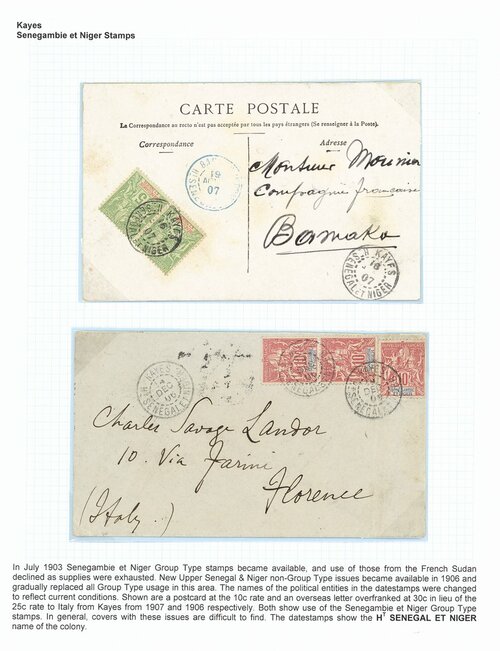 Kayes
Senegambie et Niger Stamps
CARTE POSTALE
La Correspondance au recto n'est pas acceptée par tous les pays étrangers (Se renseigner à la Poste).
Correspondance
Adresse
Monsieur Mounier
Compagnie française
Bamako
19
07
KAYES
07
ET NIGER
KAYES
16
07
SENEGAL ET NIGER
KAYES
DEC
SENEGAL
10
10
10
DEC
SENEGAL
Charles Savage Landor
10. Via Farini
Florence
(Italy)
In July 1903 Senegambie et Niger Group Type stamps became available, and use of those from the French Sudan
declined as supplies were exhausted. New Upper Senegal & Niger non-Group Type issues became available in 1906 and
gradually replaced all Group Type usage in this area. The names of the political entities in the datestamps were changed
to reflect current conditions. Shown are a postcard at the 10c rate and an overseas letter overfranked at 30c in lieu of the
25c rate to Italy from Kayes from 1907 and 1906 respectively. Both show use of the Senegambie et Niger Group Type
stamps. In general, covers with these issues are difficult to find. The datestamps show the Hᵀ SENEGAL ET NIGER
name of the colony.